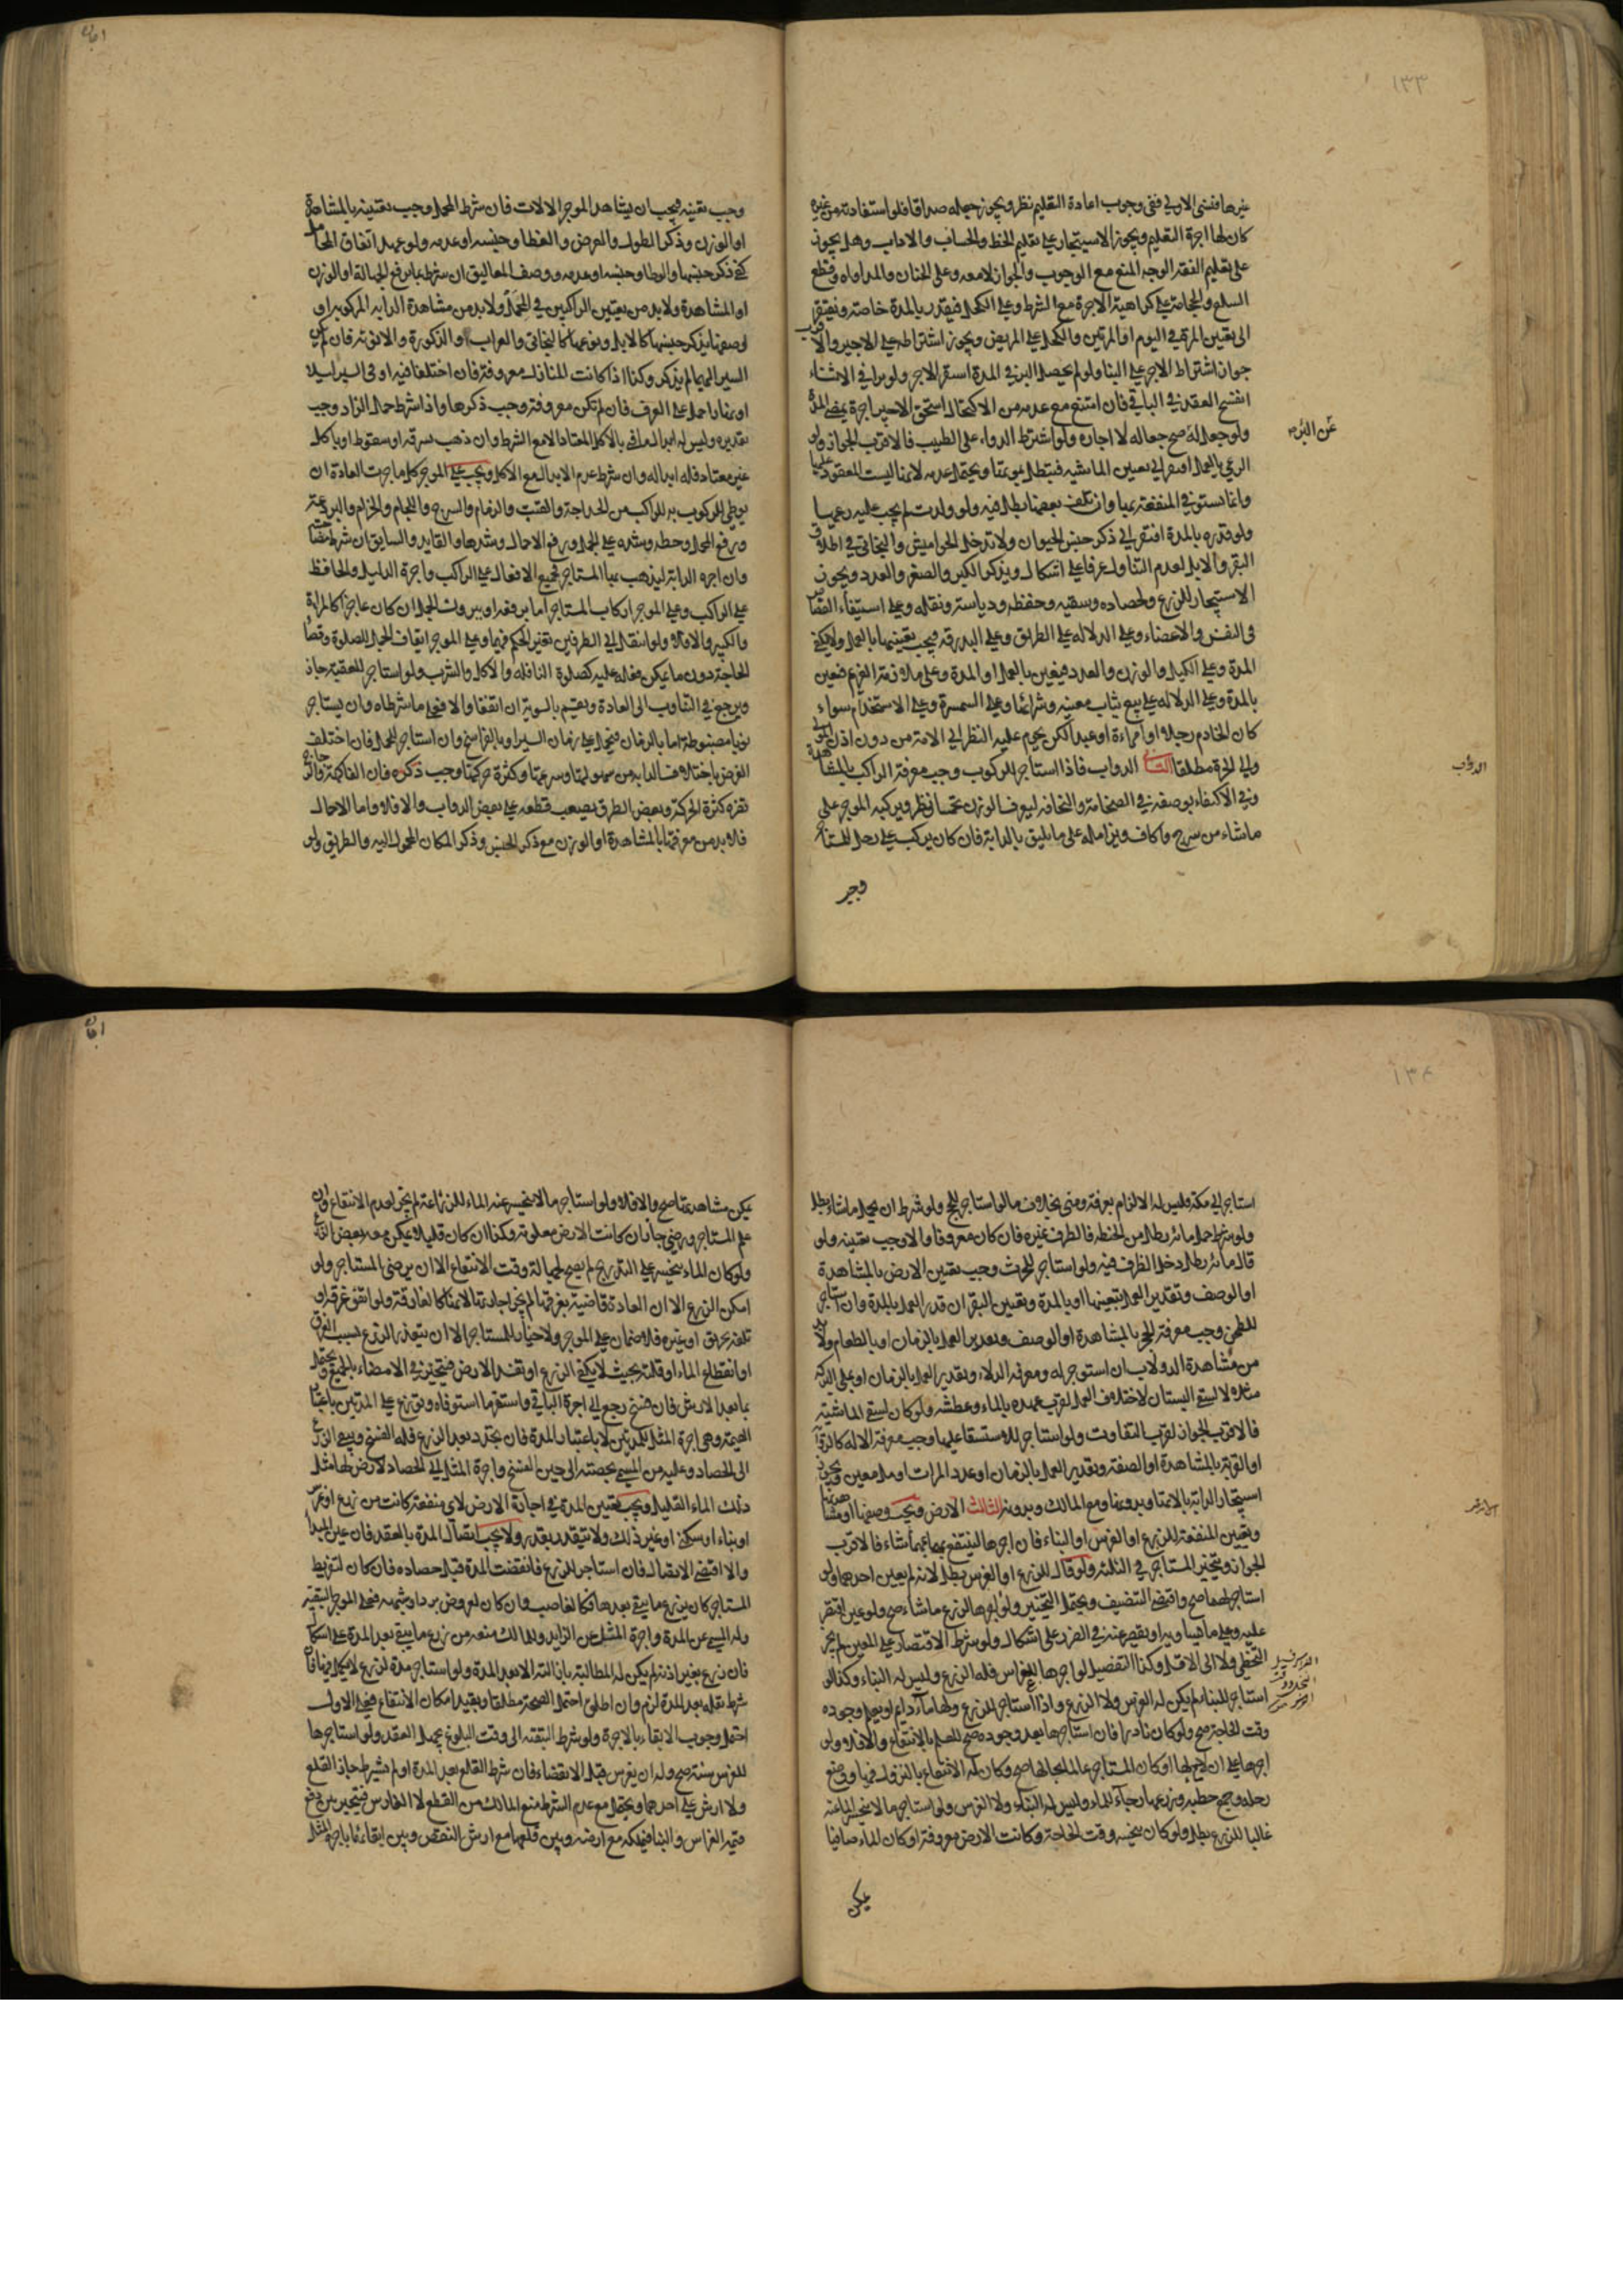 ١٣٣
غيرها فنسى الاول ففي وجوب اعادة التعليم نظر ويجوز جعله صداقا فلو استفادته من غيره
كان لها اجرة التعليم ويجوز الاستيجار على تعليم الخط والحساب والاداب وهل يجوز
على تعليم الفقه الوجه المنع مع الوجوب والجواز لا معه وعلى الختان والمداواه وقطع
السلع والحجامة على كراهية الاجرة مع الشرط وعلى الكحل فيقدر بالمدة خاصة ويفتقر
الى تعيين المرة في اليوم او المرتين والكحل على المريض ويجوز اشتراطه على الاجير والاقرب
جواز اشتراط الاجر على البناء ولو لم يحصل البرء في المدة استقر الاجر ولو برا في الاثناء
انفسخ العقد في الباقي فان امتنع مع عدمه من الاكتحال استحق الاجير اجرة بمضي المدة
ولو جعل له صح جعاله لا اجاره ولو اشترط الدواء على الطبيب فالاقرب الجواز ولو
عن البرء
الرعي بالعمل افتقر الى تعيين الماشيه فتبطل بموتها ويحتمل عدمه لانها ليست المعقود عليها
وانما يستوفي المنفعة بها وان تلف بعضها بطل فيه ولو ولدت لم يجب عليه رعيها
ولو قدره بالمدة افتقر الى ذكر جنس الحيوان ولا تدخل الجواميس والبخاتي في اطلاق
البقر والابل لعدم التناول عرفا على اشكال ويذكر الكبر والصغر والعدد ويجوز
الاستيجار للزرع ولحصاده وسقيه وحفظه ودياسته ونقله وعلى استيفاء القصاص
في النفس والاعضاء وعلى الدلاله على الطريق وعلى البدرقه فيجب تعيينها بالعمل ولا يكفي
المدة وعلى الكيل والوزن والعدد فيعين بالعمل او المدة وعلى ملازمة الغريم فيعين
بالمدة وعلى الدلاله على بيع ثياب معينه وشرائها وعلى السمسرة وعلى الاستخدام سواء
كان الخادم رجلا او امراءة او عبدا لكن يحرم عليه النظر الى الامة من دون اذن المولى
والى الحرة مطلقا الثاني الدواب فاذا استاجر للركوب وجب معرفة الراكب بالمشاهدة
الدواب
وفي الاكتفاء بوصفه في الضخامة والنحافه ليعرف الوزن تخمينا نظر ويركبه الموجر على
ماشاء من سرج واكاف وزامله على ما يليق بالدابة فان كان يركب على رحل للمستاجر
وجب
وجب تعيينه فيجب ان يشاهد الموجر الالات فان شرط المحمل وجب تعيينه بالمشاهدة
او الوزن وذكر الطول والعرض والغطا وجنسه او عدمه ولو عهد اتفاق المحامل
كفى ذكر جنسها والوطا وجنسه او عدمه ووصف المعاليق ان شرطها بما يرفع الجهالة او الوزن
او المشاهدة ولابد من تعيين الراكبين في المحمل ولابد من مشاهدة الدابه المركوبه او
وصفها بذكر جنسها كالابل ونوعها كالبخاتي والعراب او الذكورة والانوثة فان لم يكن
السير اليهما لم يذكر وكذا اذا كانت المنازل معروفة فان اختلفا فيه او في السير ليلا
او نهارا حمل على العرف فان لم تكن معروفة وجب ذكرها واذا شرط حمل الزاد وجب
تقديره وليس له ابدال ما فنى بالاكل المعتاد الا مع الشرط وان ذهب بسرقه او سقوط او باكل
غير معتاد فله ابداله وان شرط عدم الابدال مع الاكل ويجب على الموجر كلما جرت العادة ان
يوطى للركوب به للراكب من الحداجة والقتب والزمام والسرج واللجام والحزام والبرذعة
ورفع المحمل وحطه وشده على الجمل ورفع الاحمال وشدها والقايد والسايق ان شرط مصاحبته
وان اجره الدابة ليذهب بها المستاجر فجميع الافعال على الراكب واجرة الدليل والحافظ
على الراكب وعلى الموجر اركاب المستاجر اما برفعه او ببروك الجمل ان كان عاجزا كالمراة
والكبير والا فلا ولو انتقل الى الطرفين تغير الحكم فيهما وعلى الموجر ايقاف الجمل للصلوة وقضاء
الحاجة دون ما يمكن فعله عليه كصلوة النافله والاكل والشرب ولو استاجر للعقبة جاز
ويرجع في التناوب الى العادة ويقسم بالسوية ان اتفقا والا فعلى ما شرطاه وان يستاجر
نوبا مضبوطة اما بالزمان فيحمل على زمان السير او بالفراسخ وان استاجر للحمل فان اختلف
الغرض باختلاف الدابه من سهولتها وسرعتها وكثرة حركتها وجب ذكره فان الفاكهة والزجاج
تضره كثرة الحركة وبعض الطرق يصعب قطعه على بعض الدواب والا فلا واما الاحمال
فلابد من معرفتها بالمشاهدة او الوزن مع ذكر الجنس وذكر المكان المحمول اليه والطريق ولو
١٣٤
استاجر الى مكة فليس له الالزام بعرفة ومنى بخلاف ما لو استاجر للحج ولو شرط ان يحمل ماشاء بطل
ولو شرط حمل مائة رطل من الحنطه فالظرف غيره فان كان معروفا والا وجب تعيينه ولو
قال مائة رطل دخل الظرف فيه ولو استاجر للحرث وجب تعيين الارض بالمشاهدة
او الوصف وتقدير العمل بتعيينها او بالمدة وتعيين البقر ان قدر العمل بالمدة وان استاجر
للطحن وجب معرفة الحجر بالمشاهدة او الوصف وتقدير العمل بالزمان او بالطعام ولابد
من مشاهدة الدولاب ان استوجر له ومعرفة الدلاء وتقدير العمل بالزمان او بملى البركة
مثلا لا بسقي البستان لاختلاف العمل لقرب عهده بالماء وعطشه ولو كان لسقي الماشية
فالاقرب الجواز لقرب التفاوت ولو استاجر للاستسقا عليها وجب معرفة الاله كالراوية
او القربة بالمشاهدة او الصفة وتقدير العمل بالزمان او عدد المرات او ملا معين ويجوز
استيجار الدابة بالاتها وبدونها ومع المالك وبدونه الثالث الارض ويجب وصفها او مشاهدتها
وتعيين المنفعة للزرع او الغرس او البناء فان اجرها لينتفع بها بما شاء فالاقرب
الجواز ويتخير المستاجر في الثلثة ولو قال للزرع او الغرس بطل لانه لم يعين احدهما ولو
استاجر لهما صح واقتضى التنصيف ويحتمل التخيير ولو اجرها لزرع ماشاء صح ولو عين اقتصر
عليه وعلى ما يساويه او يقصر عنه في الضرر على اشكال ولو شرط الاقتصار على المعين لم يجز
التخطي ولا الى الاقل وكذا التفصيل لو اجرها للغراس فله الزرع وليس له البناء وكذا لو
استاجر للبناء لم يكن له الغرس ولا الزرع واذا استاجر للزرع ولها ماء دايم او يعلم وجوده
وقت الحاجة صح ولو كان نادرا فان استاجرها بعد وجوده صح للعلم بالانتفاع والا فلا ولو
اجرها على ان لا ماء لها او كان المستاجر عالما بحالها صح وكان له الانتفاع بالنزول فيها ووضع
رحله وجمع حطبه وزرعها رجاء الماء وليس له البناء ولا الغرس ولو استاجر ما لا ينحسر الماء عنه
غالبا للزرع بطل ولو كان ينحسر وقت الحاجة وكانت الارض معروفة او كان الماء صافيا
يمكن
يمكن مشاهدتها صح والا فلا ولو استاجر ما لا ينحسر عنه الماء للزراعة لم يجز لعدم الانتفاع وان
علم المستاجر ورضي جاز ان كانت الارض معلومة وكذا ان كان قليلا يمكن معه بعض الزرع
ولو كان الماء ينحسر على التدريج لم يصح لجهالة وقت الانتفاع الا ان يرضى المستاجر ولو
امكن الزرع الا ان العادة قاضية بغرقها لم يجز اجارتها لانها كالغارقة ولو اتفق غرقه او
تلفه بحريق او غيره فلا ضمان على الموجر ولا خيار للمستاجر الا ان يتعذر الزرع بسبب الغرق
او انقطاع الماء او قلته بحيث لا يكفي الزرع او تفسد الارض فيتخير في الامضاء بالجميع ويحتمل
بما بعد الارش فان فسخ رجع الى اجرة الباقي واستقر ما استوفاه ويوزع على المدتين باعتبار
القيمة وهي اجرة المثل للمدتين لا باعتبار المدة فان تجدد بعد الزرع فله الفسخ ويبقى الزرع
الى الحصاد وعليه من المسمى بحصته الى حين الفسخ واجرة المثل الى الحصاد لارض لها مثل
ذلك الماء القليل ويجب تعيين المدة في اجارة الارض لاي منفعة كانت من زرع او غرس
او بناء او سكنى او غير ذلك ولا تتقدر بقدر ولا يجب اتصال المدة بالعقد فان عين المبدا
والا اقتضى الاتصال فان استاجر للزرع فانقضت المدة قبل حصاده فان كان لتفريط
المستاجر كان يزرع ما يبقى بعدها فكالغاصب وان كان لعروض برد او شبهه فعلى الموجر التبقية
وله المسمى عن المدة واجرة المثل عن الزايد وللمالك منعه من زرع ما يبقى بعد المدة على اشكال
فان زرع بغير اذنه لم يكن له المطالبة بازالته الا بعد المدة ولو استاجر مدة لزرع لا يكمل فيها فان
شرط نقله بعد المدة لزم وان اطلق احتمل الصحة مطلقا وبقيد امكان الانتفاع فعلى الاول
احتمل وجوب الابقاء بالاجرة ولو شرط التبقيه الى وقت البلوغ بجهل العقد ولو استاجرها
للغرس سنة صح وله ان يغرس قبل الانقضاء فان شرط القلع بعد المدة او لم يشترط جاز القلع
ولا ارش على احدهما ويحتمل مع عدم الشرط منع المالك من القلع لا الغارس فيتخير بين دفع
قيمة الغراس والبنا فيملكه مع ارضه وبين قلعهما مع ارش النقص وبين ابقائهما باجرة المثل